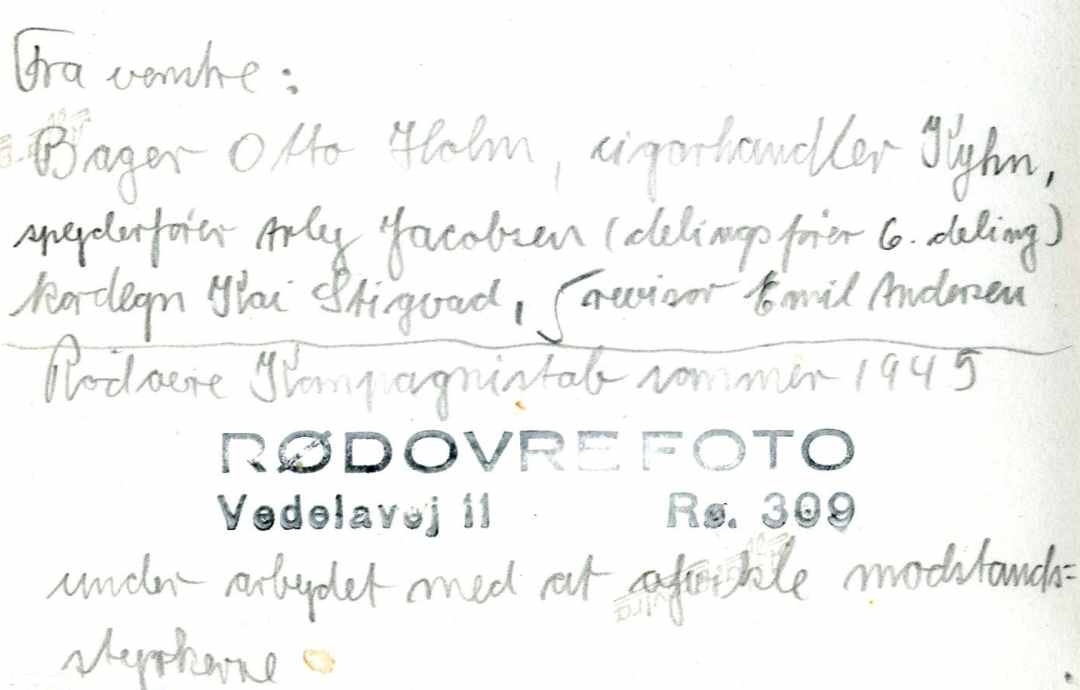 Fra venstre:
Bager Otto Holm, cigarhandler Kyhn,
spejderfører Arley Jacobsen (delingsfører 6. deling)
kordegn Kai Stigvad, revisor Emil Andersen
Rødovre Kompagnistab sommer 1945
RØDOVRE FOTO
Vedelsvej 11 Rø. 309
under arbejdet med at afvikle modstands=
styrkerne